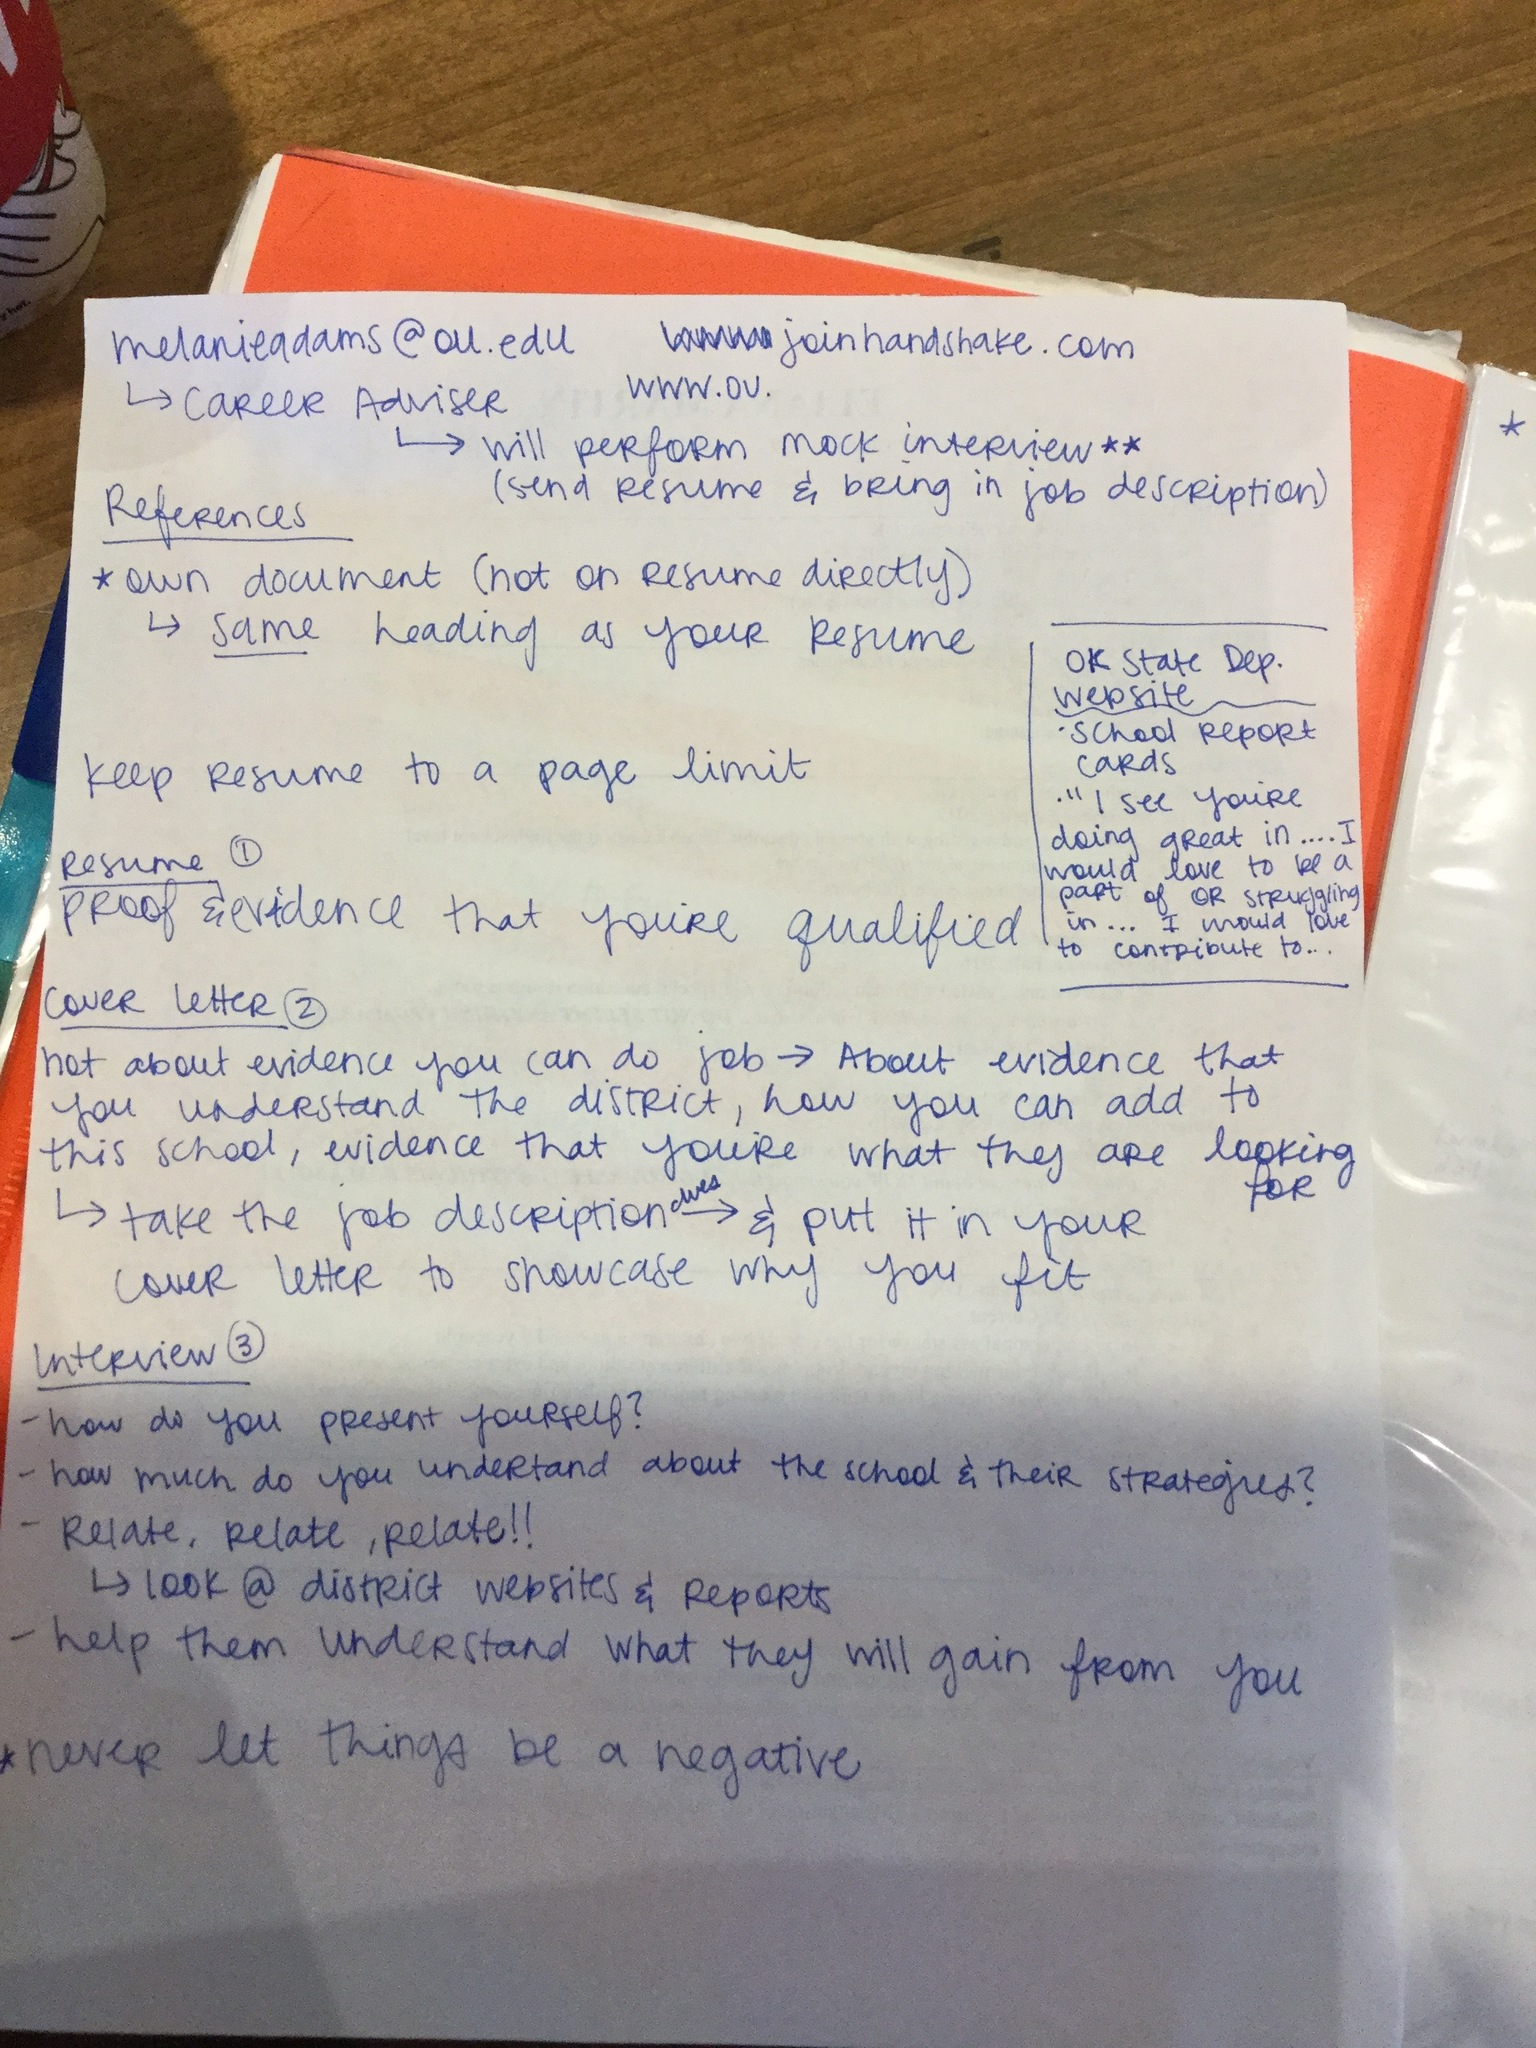 melanieadams@ou.edu joinhandshake.com
↳ Career Adviser www.ou.
↳ will perform mock interview**
(send resume & bring in job description)
References
* own document (not on resume directly)
↳ same heading as your resume
keep resume to a page limit
OK State Dep.
website
· School report
cards
· "I see you're
doing great in .... I
would love to be a
part of or struggling
in... I would love
to contribute to...
Resume ①
proof & evidence that you're qualified
Cover letter ②
not about evidence you can do job → About evidence that
you understand the district, how you can add to
this school, evidence that you're what they are looking
for
↳ take the job description → & put it in your
cover letter to showcase why you fit
Interview ③
- how do you present yourself?
- how much do you undertand about the school & their strategies?
- Relate, relate, relate!!
↳ look @ district websites & reports
- help them understand what they will gain from you
* never let things be a negative
*